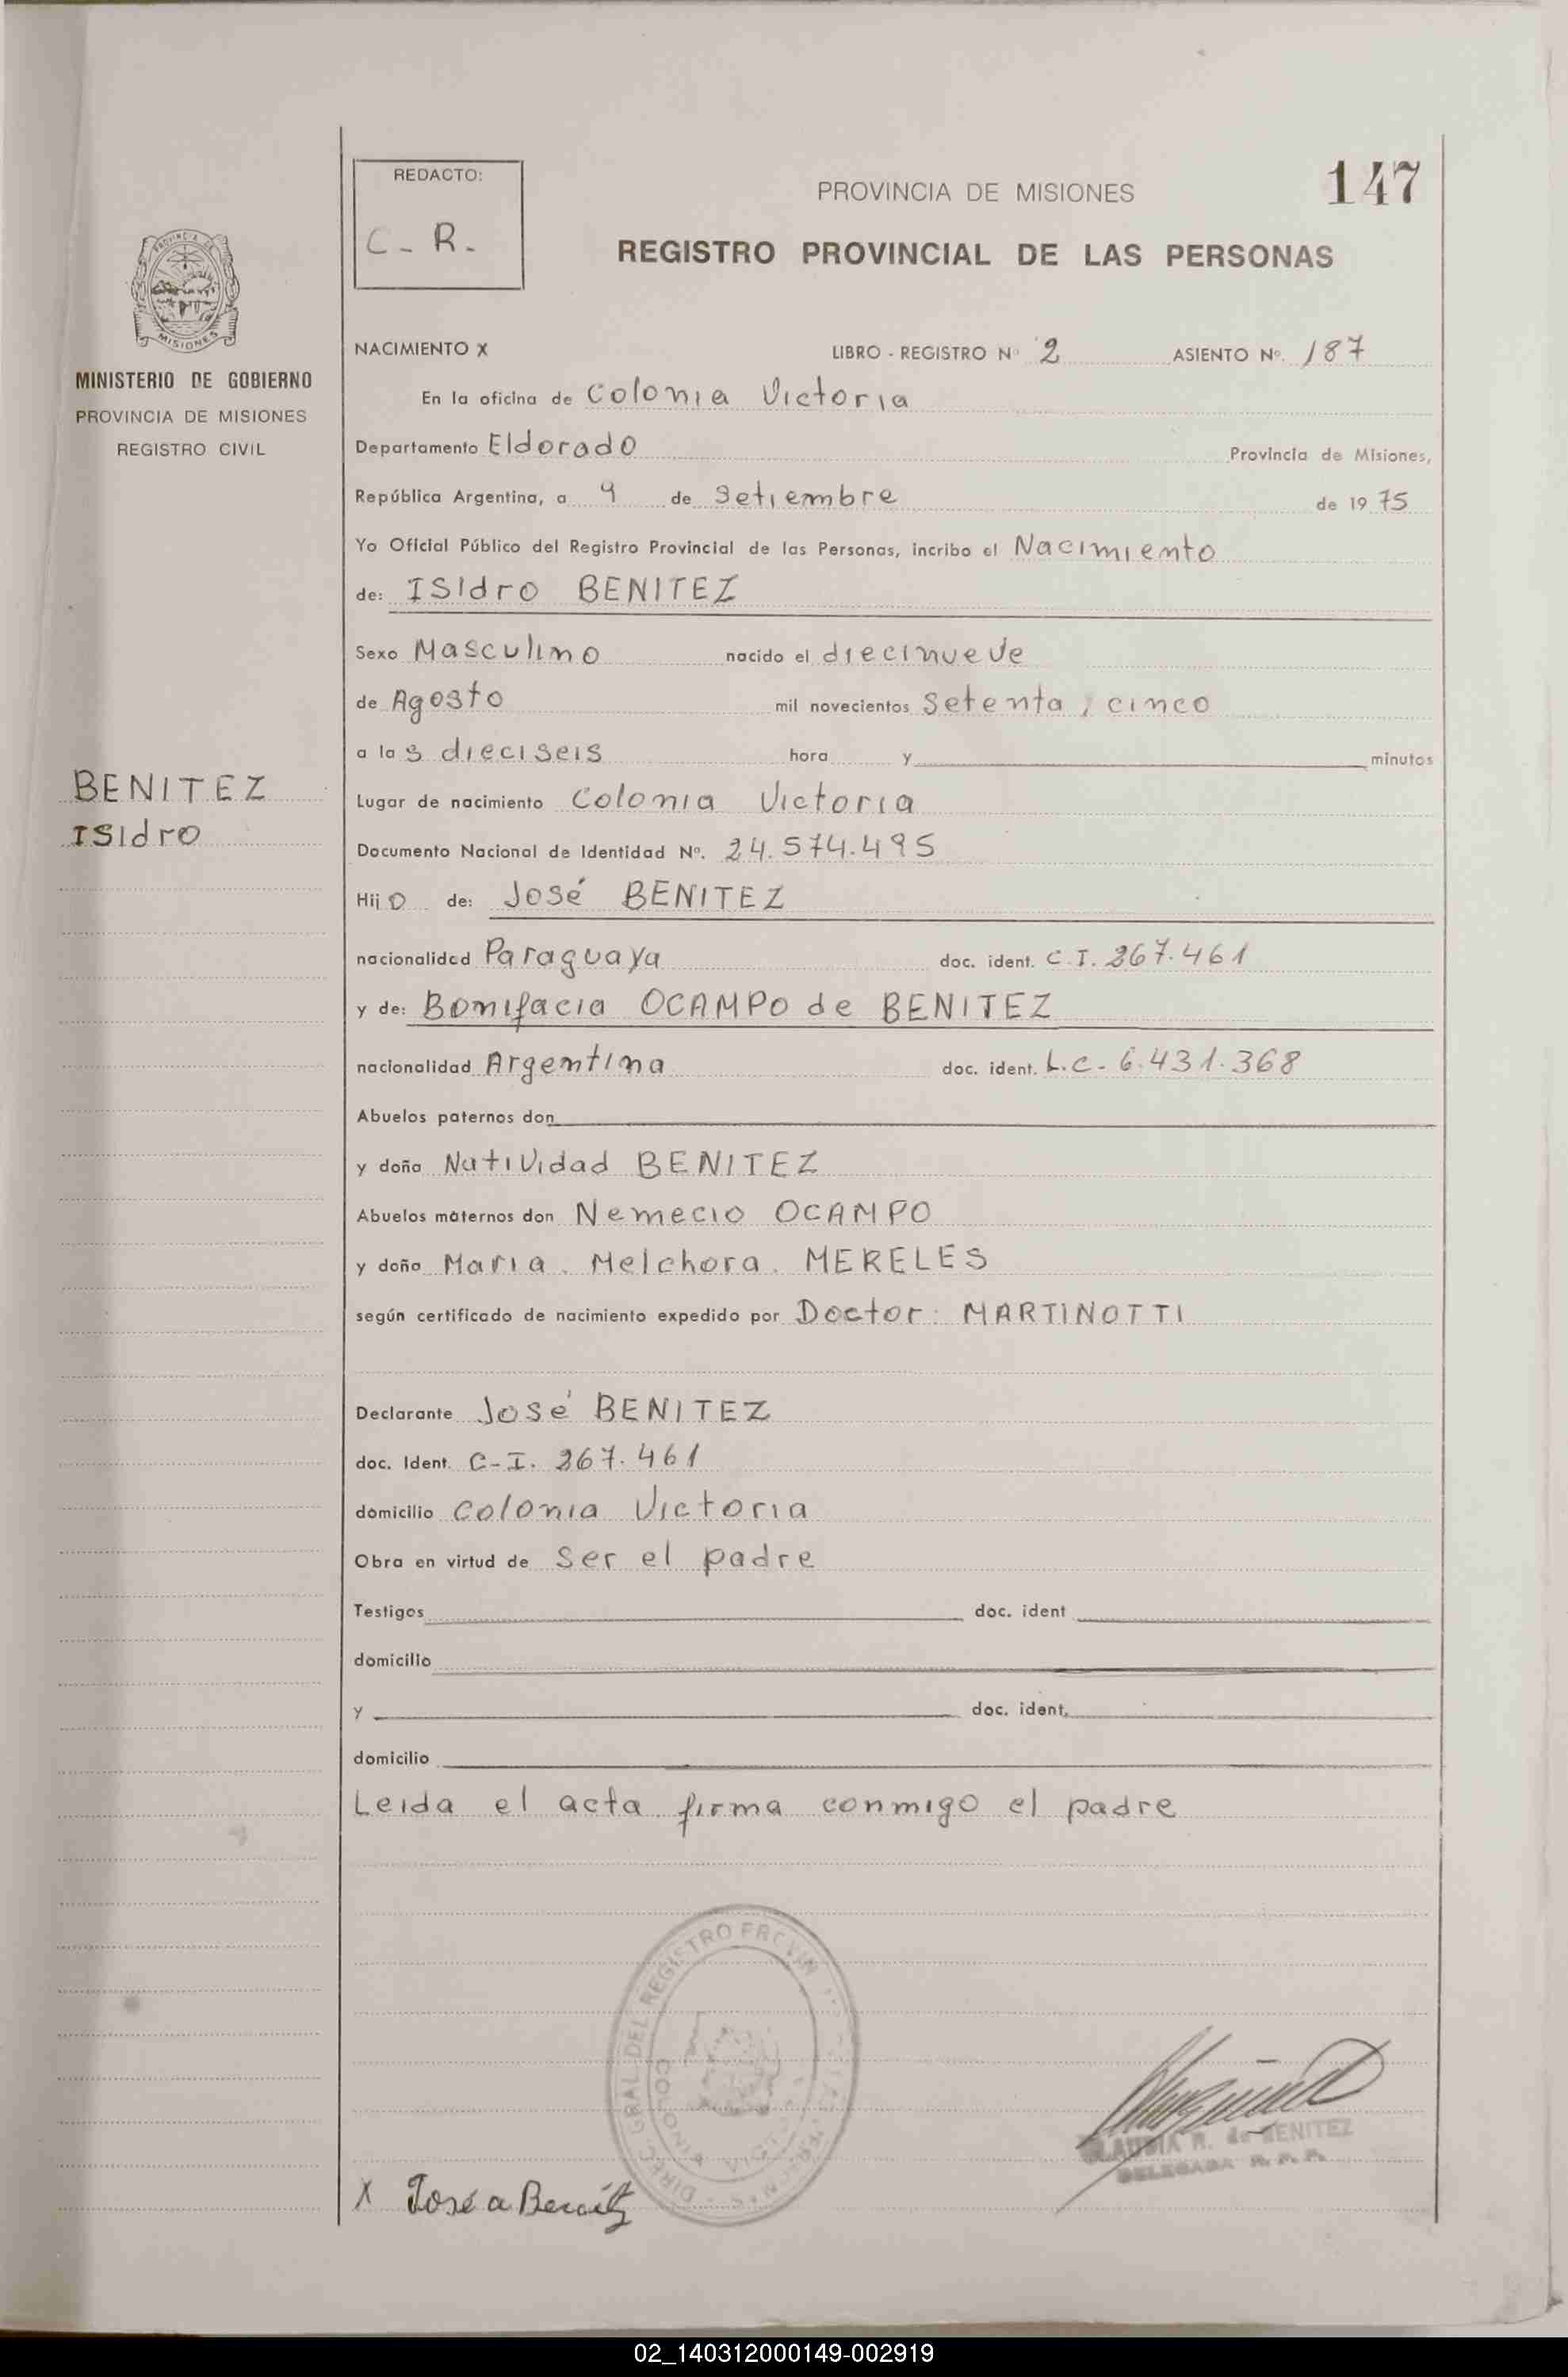 147
REDACTO:
C - R -
PROVINCIA DE MISIONES
REGISTRO PROVINCIAL DE LAS PERSONAS
PROVINCIA DE
MISIONES
MINISTERIO DE GOBIERNO
PROVINCIA DE MISIONES
REGISTRO CIVIL
BENITEZ
ISIdro
NACIMIENTO X LIBRO - REGISTRO Nº 2 ASIENTO Nº. 187
En la oficina de Colonia Victoria
Departamento Eldorado Provincia de Misiones,
República Argentina, a 9 de Setiembre de 1975
Yo Oficial Público del Registro Provincial de las Personas, incribo el Nacimiento
de: ISIdro BENITEZ
Sexo Masculino nacido el diecinueve
de Agosto mil novecientos setenta y cinco
a las dieciseis hora y minutos
Lugar de nacimiento Colonia Victoria
Documento Nacional de Identidad Nº. 24.574.495
Hijo de: José BENITEZ
nacionalidad Paraguaya doc. ident. C.I. 267.461
y de: Bonifacia OCAMPO de BENITEZ
nacionalidad Argentina doc. ident. L.C- 6.431.368
Abuelos paternos don
y doña Natividad BENITEZ
Abuelos maternos don Nemecio OCAMPO
y doña Maria. Melchora. MERELES
según certificado de nacimiento expedido por Doctor: MARTINOTTI
Declarante José BENITEZ
doc. Ident. C-I. 267.461
domicilio Colonia Victoria
Obra en virtud de ser el padre
Testigos doc. ident
domicilio
y doc. ident.
domicilio
Leida el acta firma conmigo el padre
DIREC. GRAL. DEL REGISTRO
CLAUDIA R. de BENITEZ
DELEGADA R. P. P.
X José a Benitz
02_140312000149-002919